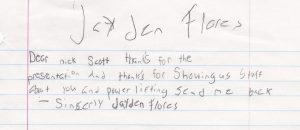 Jayden Flores
Dear nick Scott thanks for the
presentation And thanks for Showing us stuff
about you and power lifting Send me back
— Singerly Jayden Flores